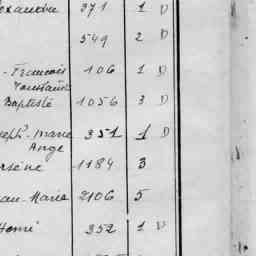 exandre 371 1 D
549 2 D
- Francois 106 1 D
Toussaint
Baptiste 1056 3 D
eph-marie 351 1 D
Ange
rsène 1184 3
ean-Marie 2106 5
Henri 352 1 D